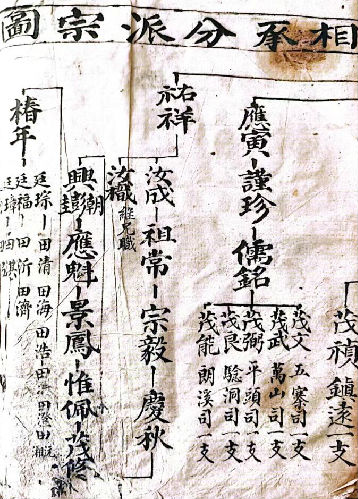 相承分派宗圖
茂禎鎮遠一支
應寅謹珍儒銘
茂文五寨司一支
茂武萬山司一支
茂弼平頭司一支
茂良騐洞司一支
茂能朗溪司一支
祐祥
汝成祖常宗毅慶秋
汝職繼兄職
興朝
興彭應魁景鳳惟佩茂
椿年
廷琮田清田海田浩田澄田
廷福田沂田濟
廷璋田